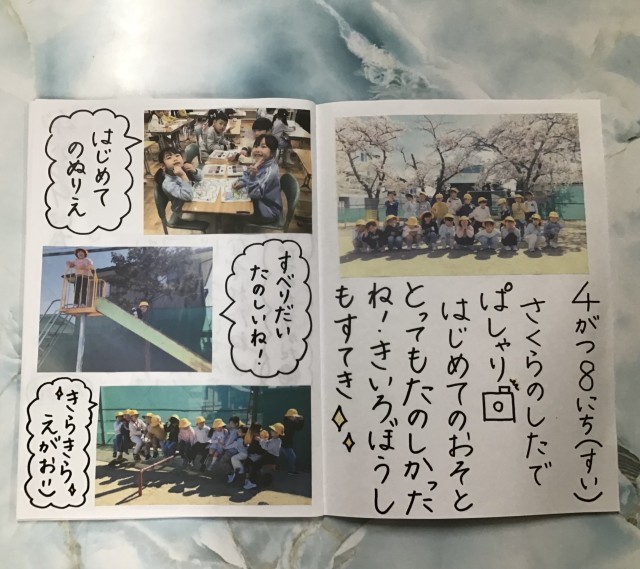 4がつ8にち(すい)
さくらのしたで
ぱしゃり
はじめてのおそと
とってもたのしかった
ね!きいろぼうし
もすてき
はじめて
のぬりえ
すべりだい
たのしいね!
きらきら
えがお